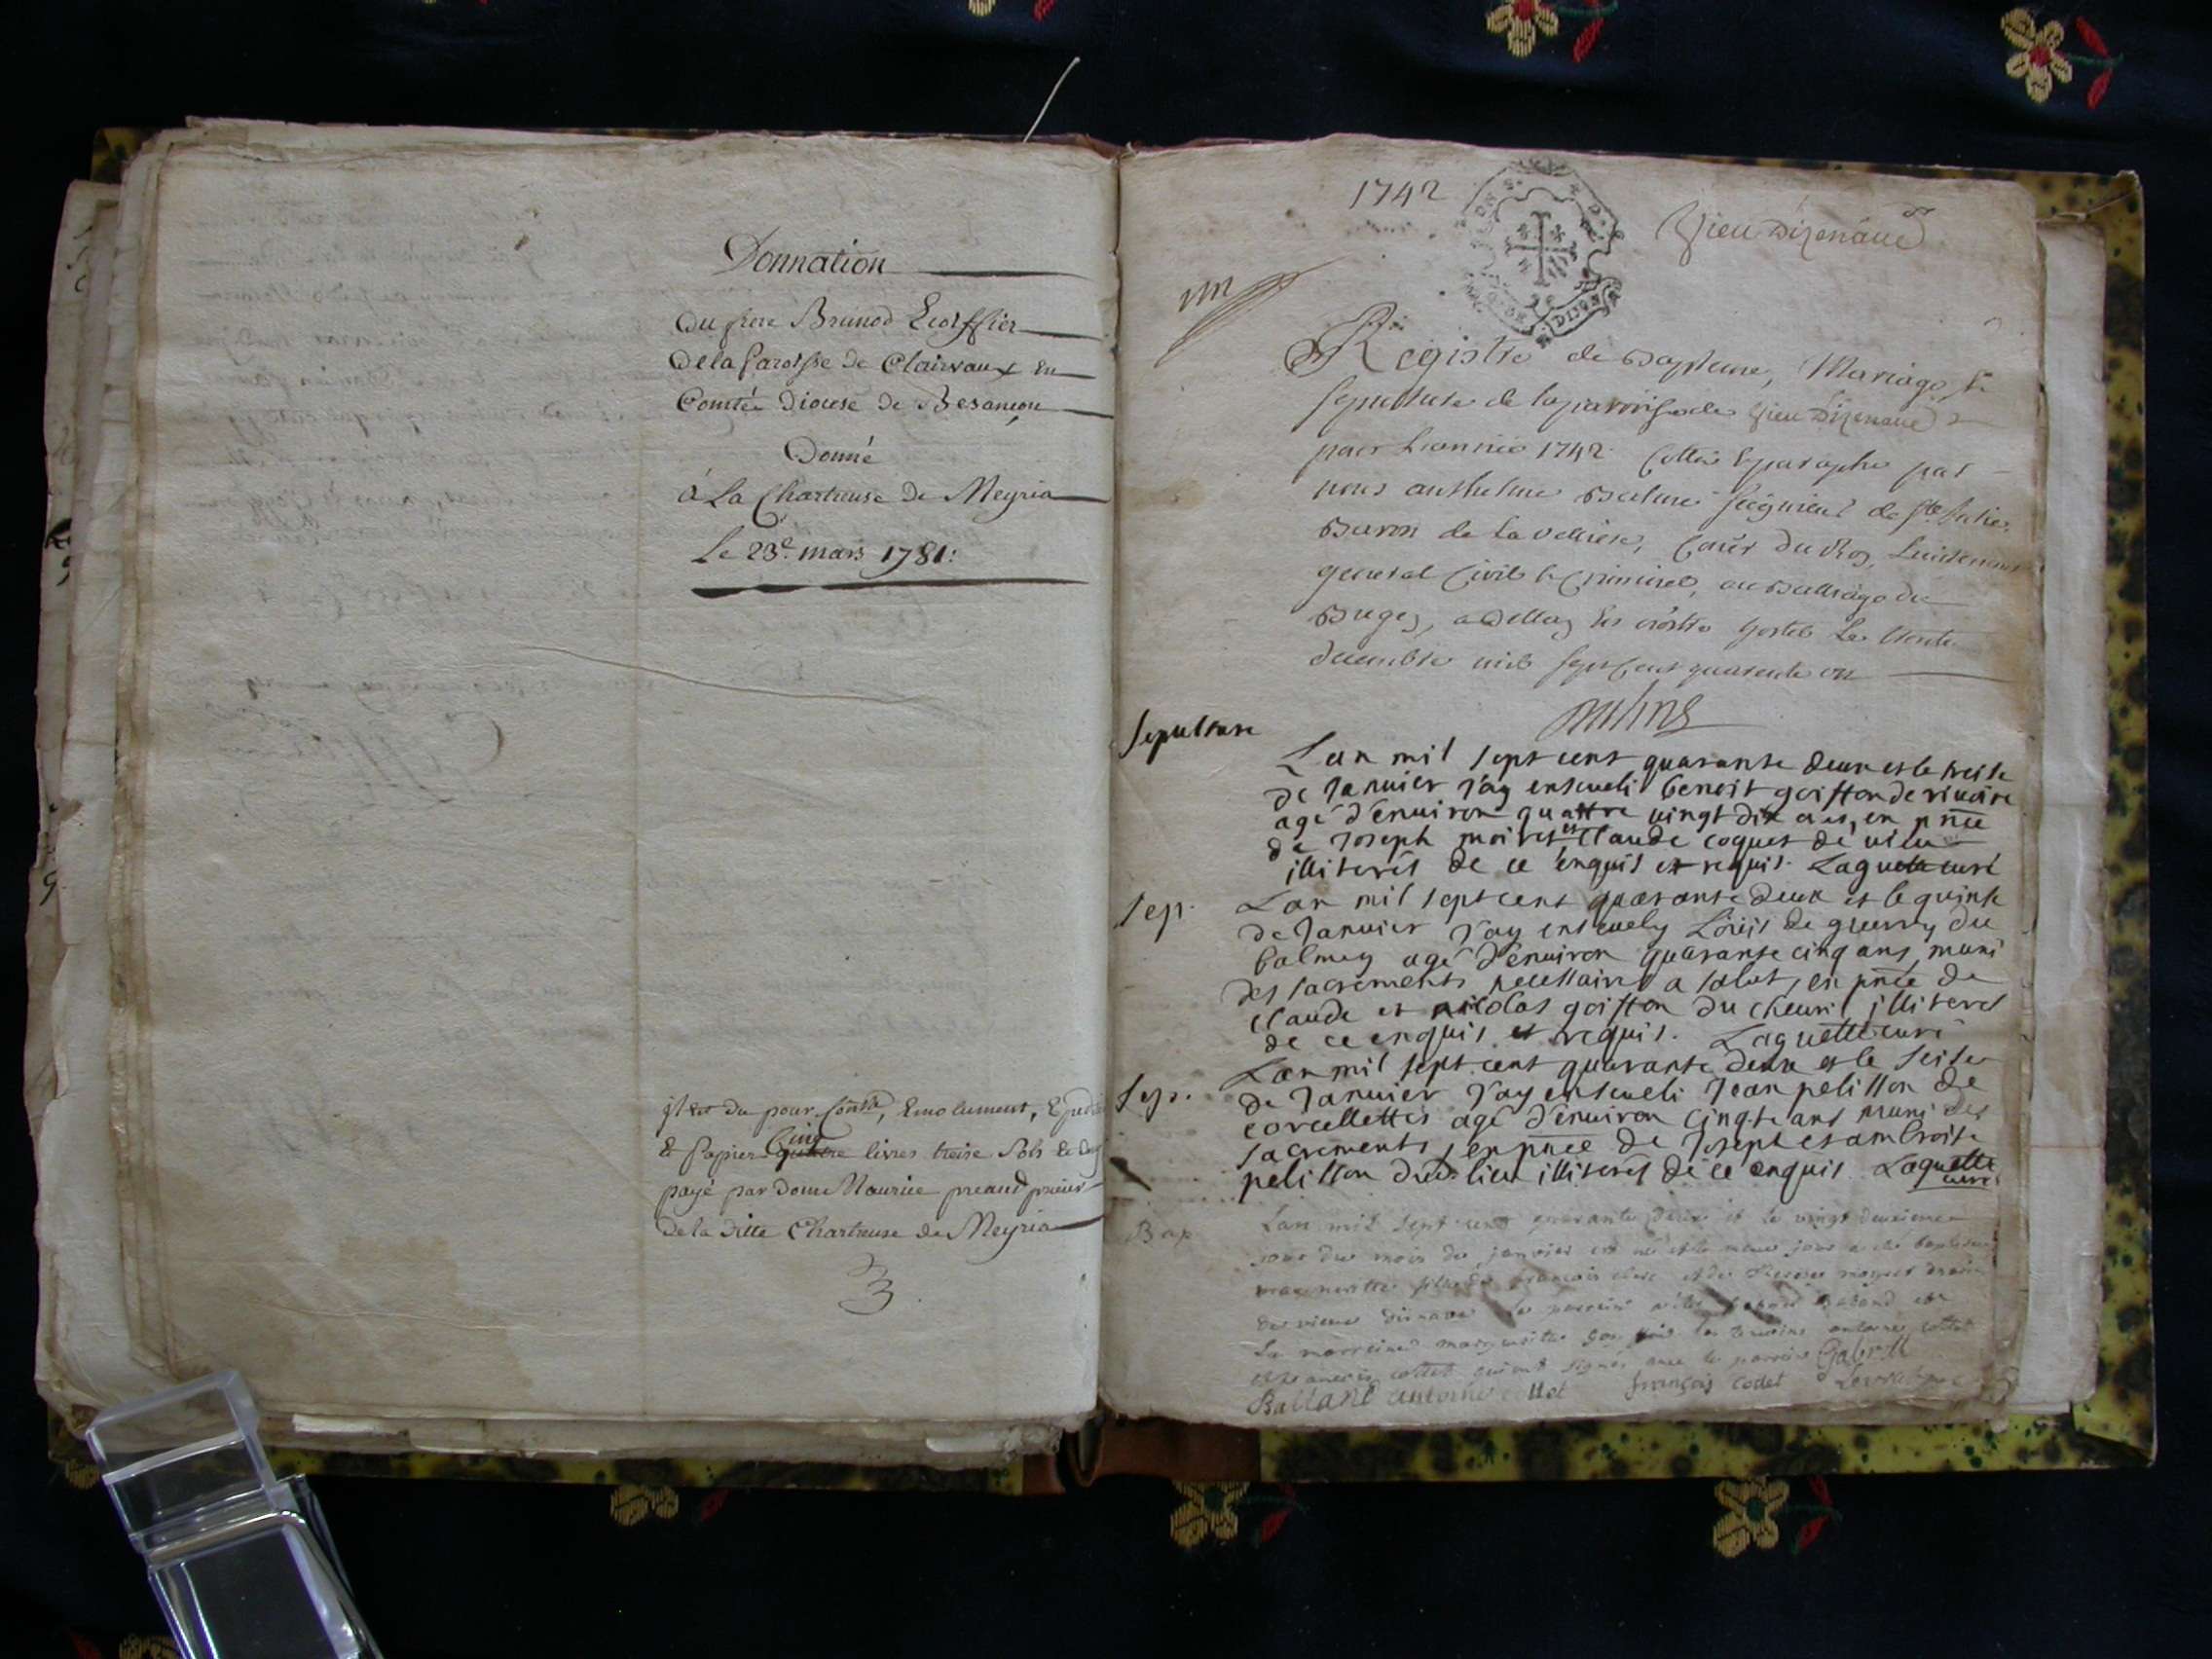 Donnation
Du frere Brunod
De la Paroisse de Clairvaux En
Comtée Diocese de Besançon
Donné
á La Chartreuse De Meyria
Le 23e. mars 1781:
il est du pour Emolument,
& Papier Cinq livres treize sols &
payé par Dome Maurice prieur
De la ditte Chartreuse de Meyria
1742
DIJON
Vieu Dizenave
Registre de Bapteme, Mariage, &
sepulture de la paroisse de Vieu Dizenave
pour L'année 1742. Cotté & paraphé par
nous anthelme Balme seigneur de Ste Julie,
Baron de la Velliere, Coner du Roy, Lieutenant
general Civil & Criminel, au Balliage du
Bugey, a Belley Le trente
decembre mil sept Cent quarente un
Sepulture
L'an mil sept cent quarante deux et le treise
de Janvier J'ay enseveli benoit goiffon de
agé d'environ quattre vingt dix ans, en pnce
de Joseph et Claude coquet de vieu
illiterés de ce enquis et requis. Laguette curé
Sep.
L'an mil sept cent quarante deux et le quinse
de Janvier J'ay ensevely Loüis de guerry du
balmey agé d'environ quarante cinq ans, muni
des sacrements necessaires a salut, en pnce de
claude et nicolas goiffon du chevril illiterés
de ce enquis et requis. Laguette curé
Sep.
L'an mil sept cent quarante deux et le seise
de Janvier J'ay enseveli Jean pelisson de
corcellettes agé d'environ cinqte ans muni des
sacrements, en pnce de Joseph et ambroise
pelisson dud. lieu illiterés de ce enquis Laguette
curé
Bap
L'an mil sept cent quarante deux et le vingt deuxieme
jour du mois de janvier est né et le meme jour a été baptisée
margueritte fille de francois et de
de vieu le parrein
la marreine margueritte les temoins antoine cottet
et francois cottet qui ont signés avec le parrein Gabriel
Balland antoine cottet françois codet